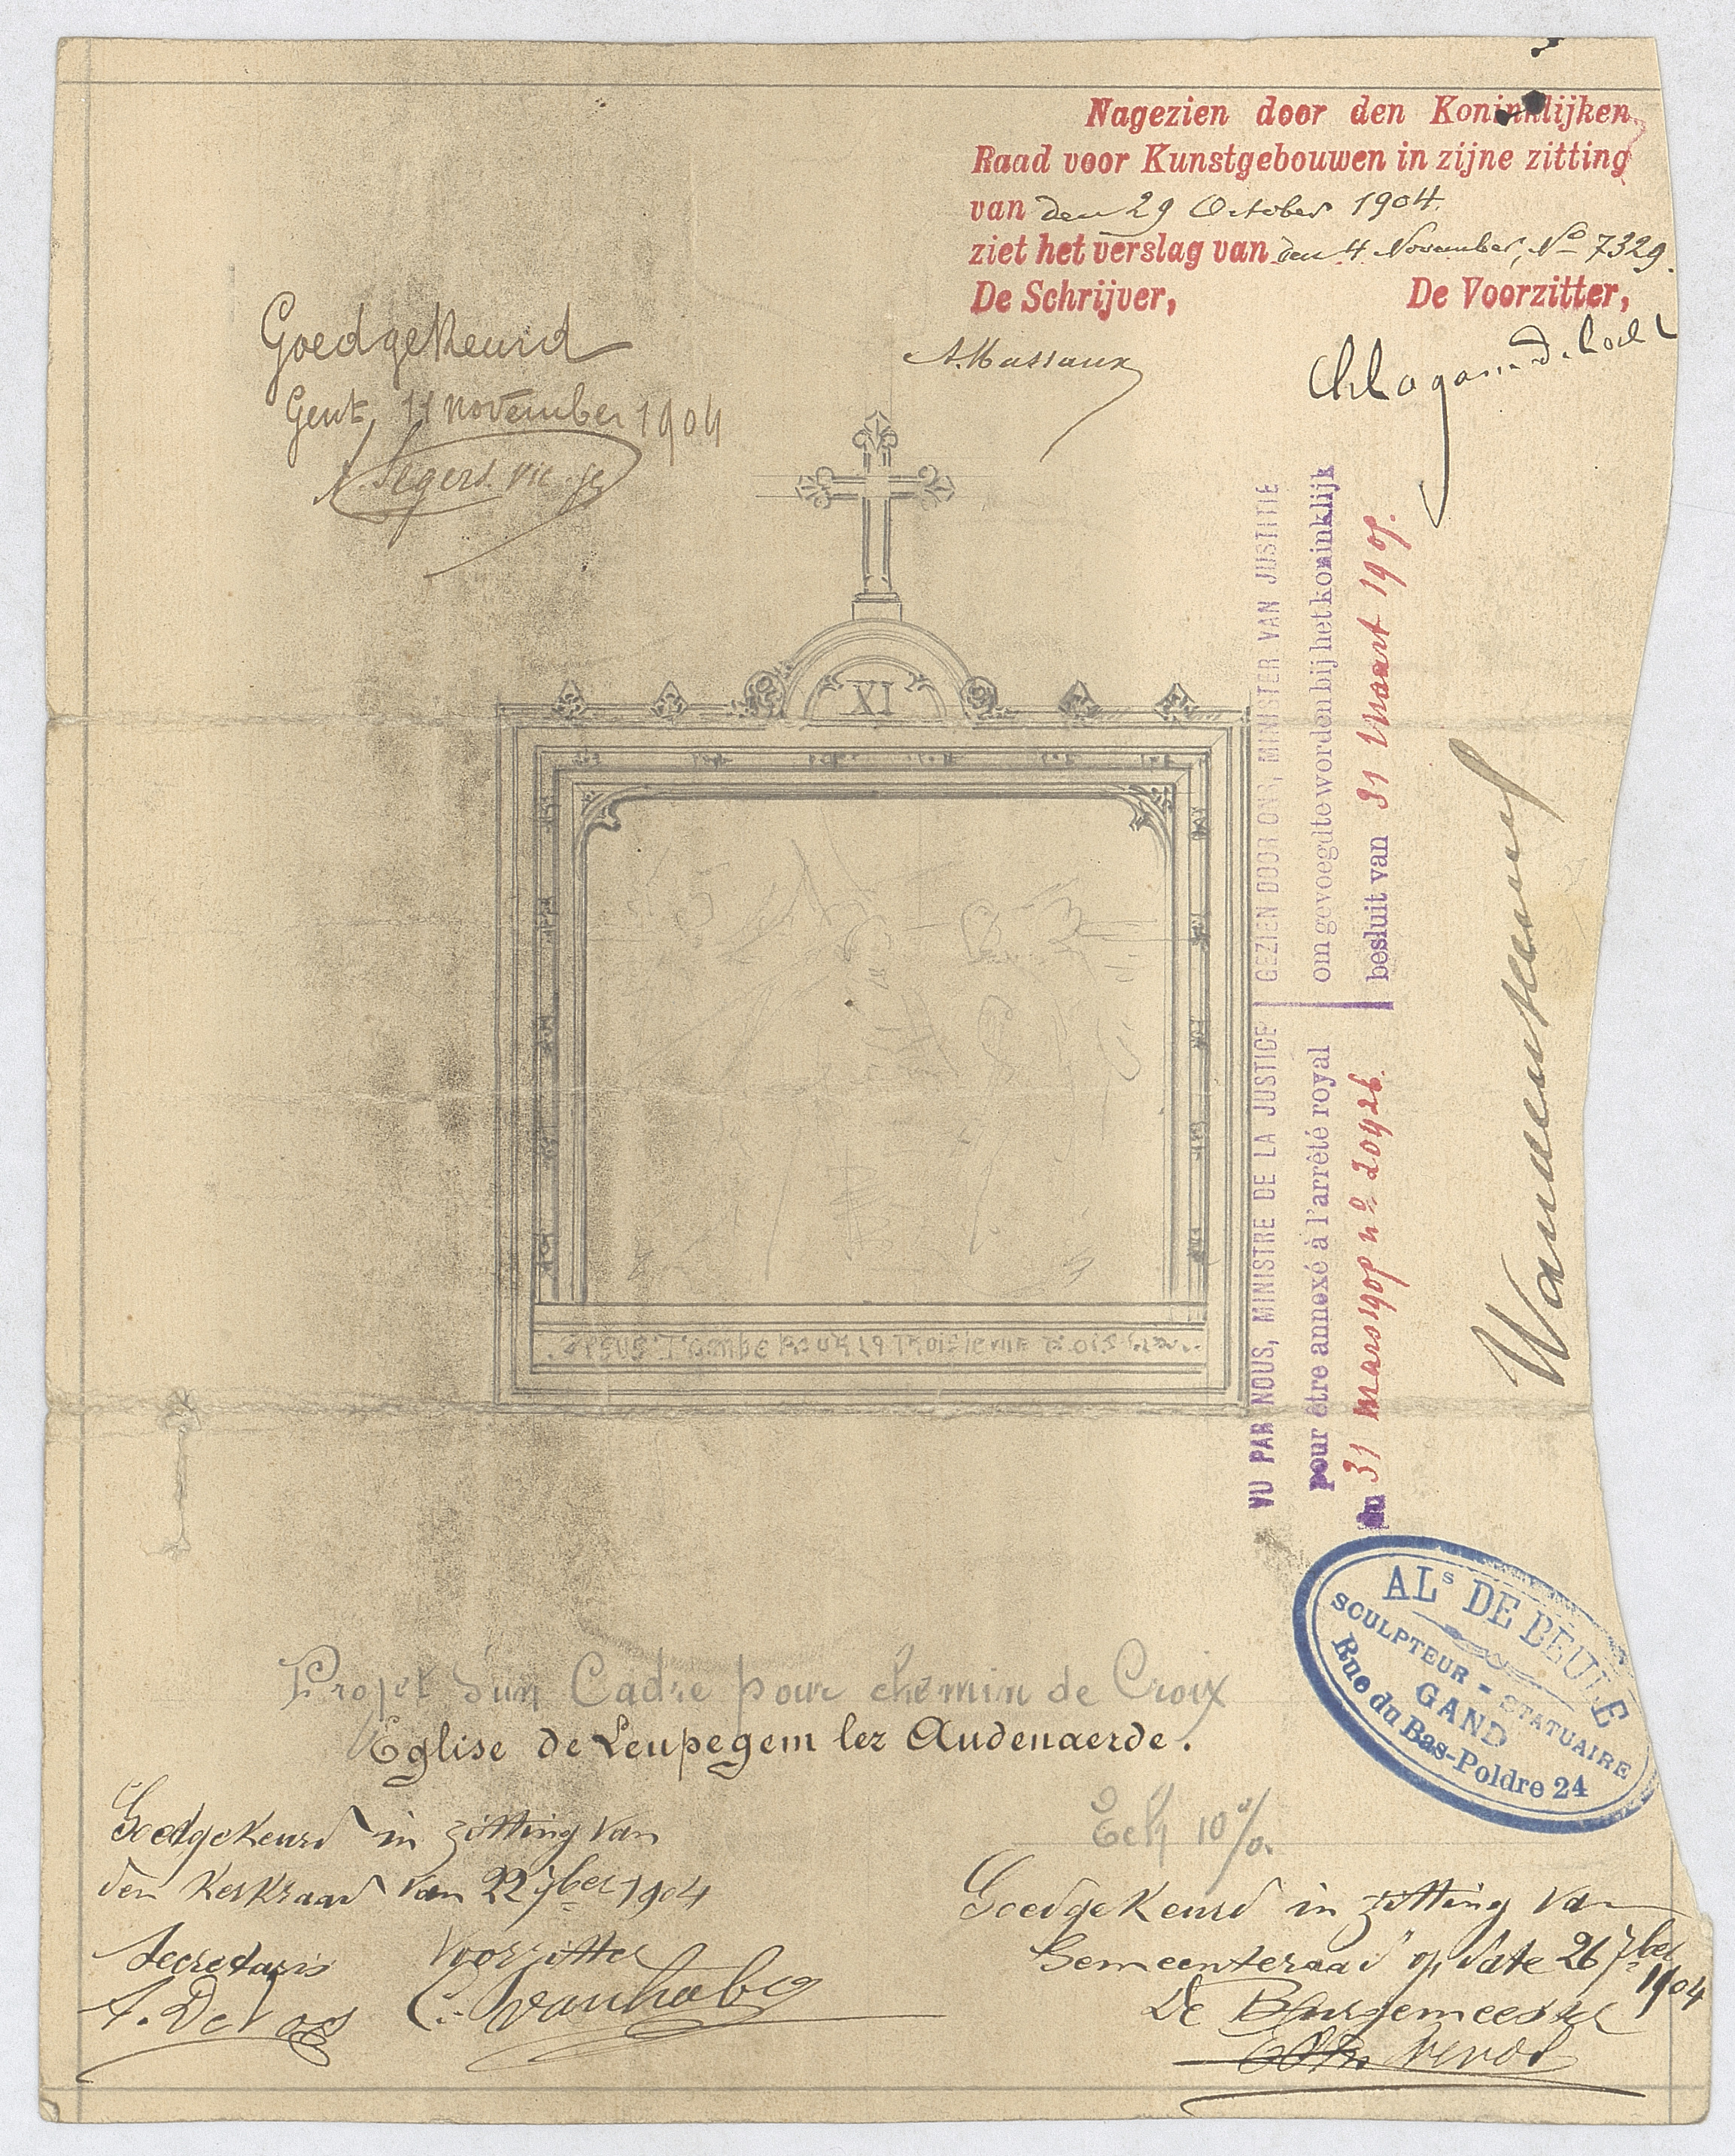 Nagezien door den Koninklijken
Raad voor Kunstgebouwen in zijne zitting
van den 29 October 1904.
ziet het verslag van den 4 November, No 7329.
De Schrijver, De Voorzitter,
A. Massaux
Goedgekeurd
Gent, 11 november 1904
Segers vic. g.
XI
GEZIEN DOOR ONS, MINISTER VAN JUSTITIE
om gevoegd te worden bij het koninklijk
besluit van 31 Maart 190
VU PAR NOUS, MINISTRE DE LA JUSTICE
pour être annexé à l'arrêté royal
du 31 mars 190 no
Jesus Tombe Pour La Troisieme Fois
ALs DE BEULE
SCULPTEUR - STATUAIRE
GAND
Rue du Bas-Poldre 24
Projet d'un Cadre pour chemin de Croix
Eglise de Leupegem lez Audenaerde.
Ech 10%.
Goedgekeurd in zitting van
den Kerkraad van 22 7ber 1904
Secretaris Voorzitter
A. De Vos
Goedgekeurd in zitting van
Gemeenteraad op date 26 7ber
1904
De Burgemeester